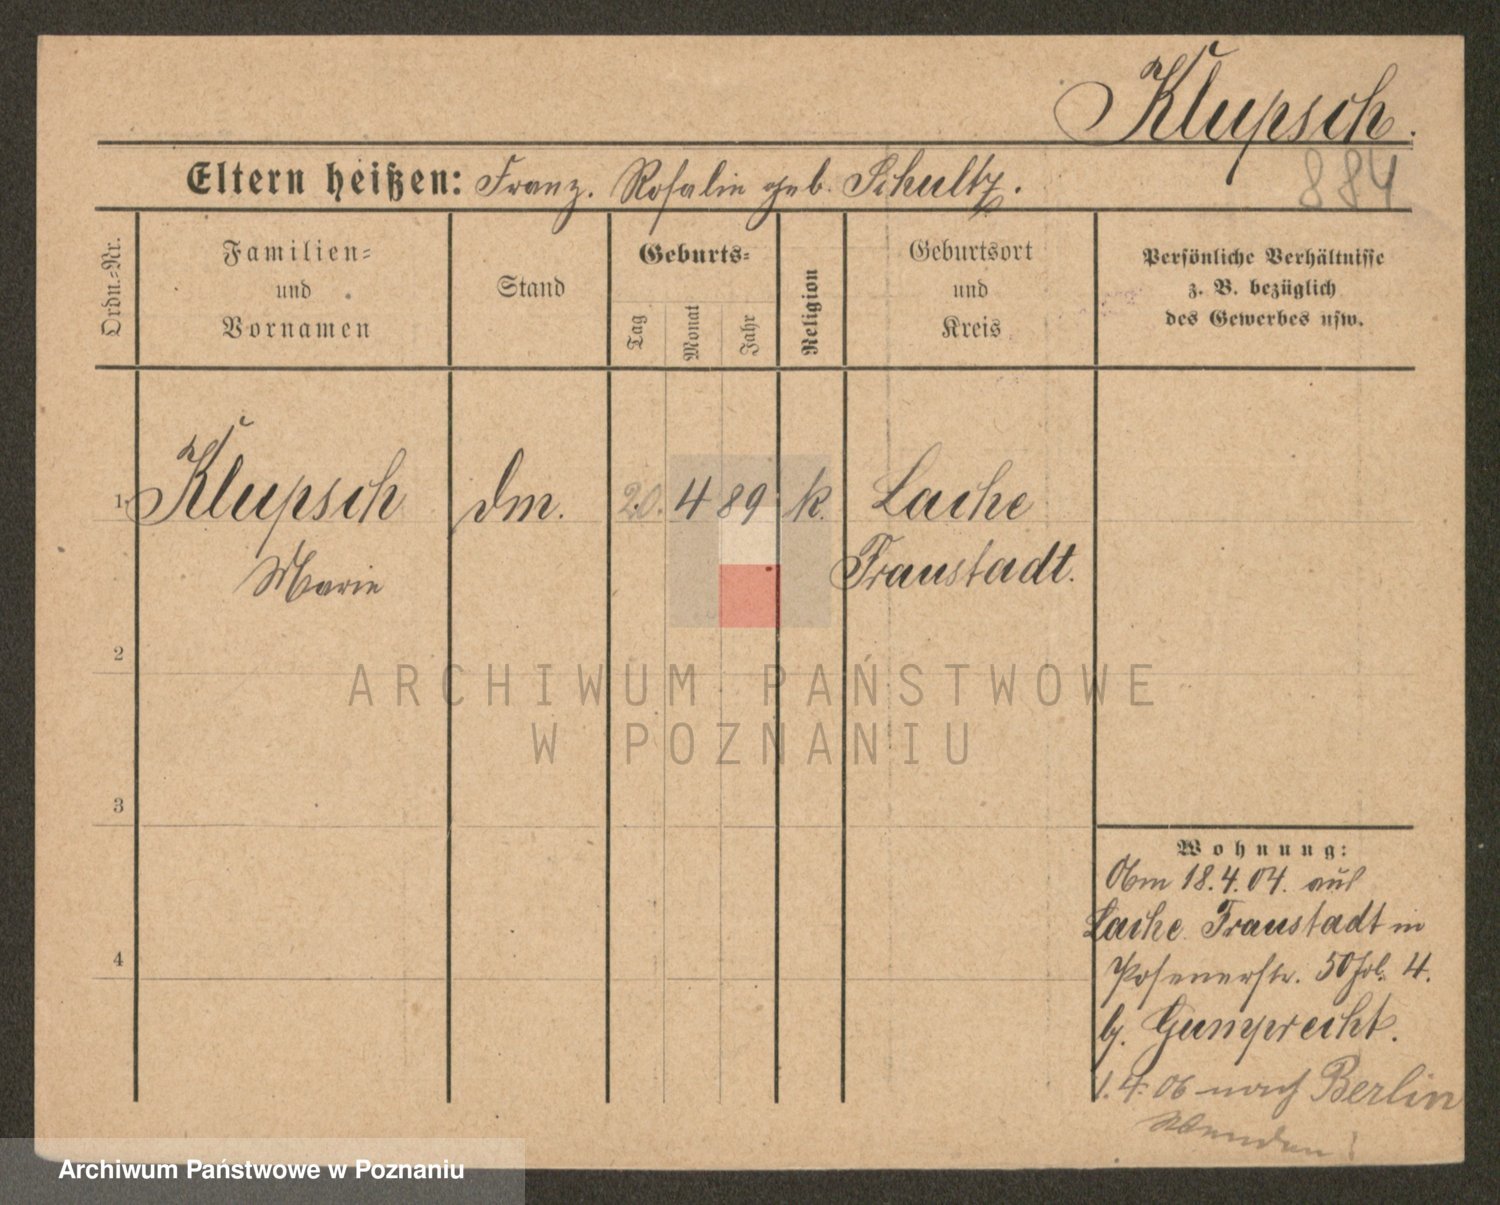 Klupsch.
884
Eltern heißen: Franz. Rosalie geb. Schultz.
Ordn.-Nr.
Familien- und Vornamen
Stand
Geburts-
Tag
Monat
Jahr
Religion
Geburtsort und Kreis
Persönliche Verhältnisse
z. B. bezüglich
des Gewerbes usw.
1 Klupsch dm. 20. 4 89 k. Lache
Marie Fraustadt.
2
ARCHIWUM PAŃSTWOWE
W POZNANIU
3
4
Wohnung:
18.4.04. aus
Lache Fraustadt in
Posenerstr. 50 4.
b. Gumprecht.
1.4.06 nach Berlin
Wenden!
Archiwum Państwowe w Poznaniu